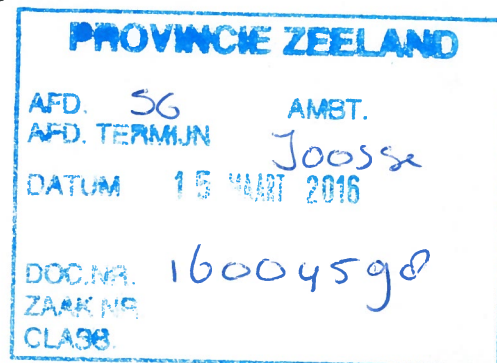 PROVINCIE ZEELAND
AFD. SG AMBT.
AFD. TERMIJN Joosse
DATUM 15 MAART 2016
DOC.NR. 16004598
ZAAK NR
CLASS.